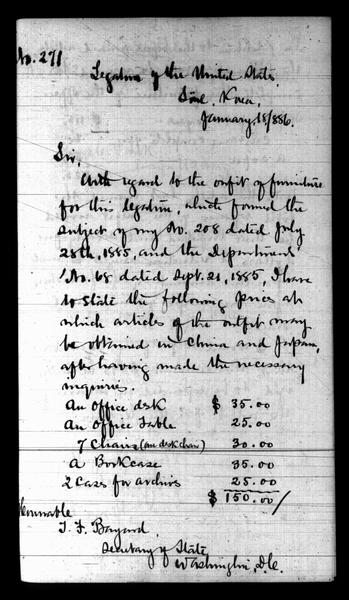 No. 271
Legation of the United States,
Söul, Korea,
January 18/886.
Sir,
With regard to the outfit of furniture
for this legation, which formed the
subject of my No. 208 dated July
28th, 1885, and the Department's
No. 68 dated Sept. 21, 1885, I have
to state the following prices at
which articles of the outfit may
be obtained in China and Japan,
after having made the necessary
inquiries.
An Office desk $ 35.00
An Office Table 25.00
7 Chairs (an desk chair) 30.00
A Bookcase 35.00
2 Cases for archives 25.00
$ 150.00/
Honorable
T. F. Bayard,
Secretary of State,
Washington, D.C.